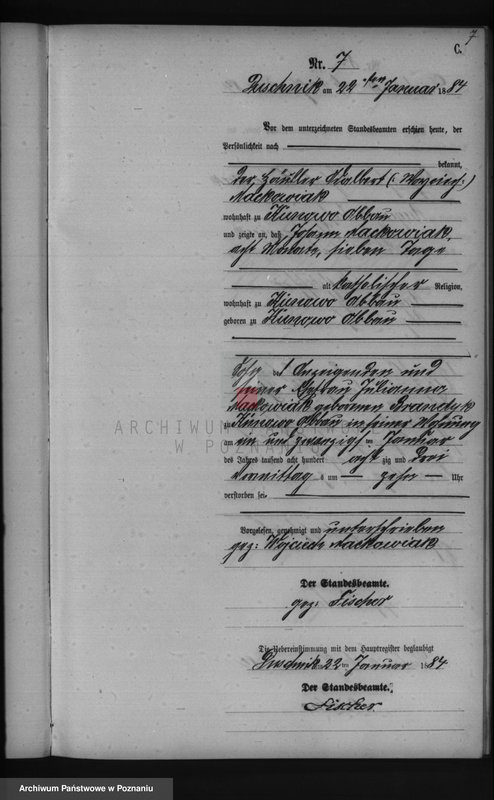 7
C.
Nr. 7
Duschnik am 22 ten Januar 1884
Vor dem unterzeichneten Standesbeamten erschien heute, der
Persönlichkeit nach
bekannt,
der Häusler Adalbert (: Woyciech :)
Maćkowiak
wohnhaft zu Kunowo Abbau
und zeigte an, daß Johann Maćkowiak,
acht Monate, sieben Tage
alt katholischer Religion,
wohnhaft zu Kunowo Abbau
geboren zu Kunowo Abbau
Sohn des Anzeigenden und
seiner Ehefrau Julianna
Maćkowiak geborenen Brandyk
zu Kunowo Abbau in seiner Wohnung
am ein und zwanzigsten Januar
des Jahres tausend acht hundert achtzig und drei
Vormittags um zehn Uhr
verstorben sei.
Vorgelesen, genehmigt und unterschrieben
gez: Wojciech Maćkowiak
Der Standesbeamte.
gez: Fischer
Die Uebereinstimmung mit dem Hauptregister beglaubigt
Duschnik 22 ten Januar 1884
Der Standesbeamte.
Fischer
ARCHIWUM PAŃSTWOWE
W POZNANIU
Archiwum Państwowe w Poznaniu